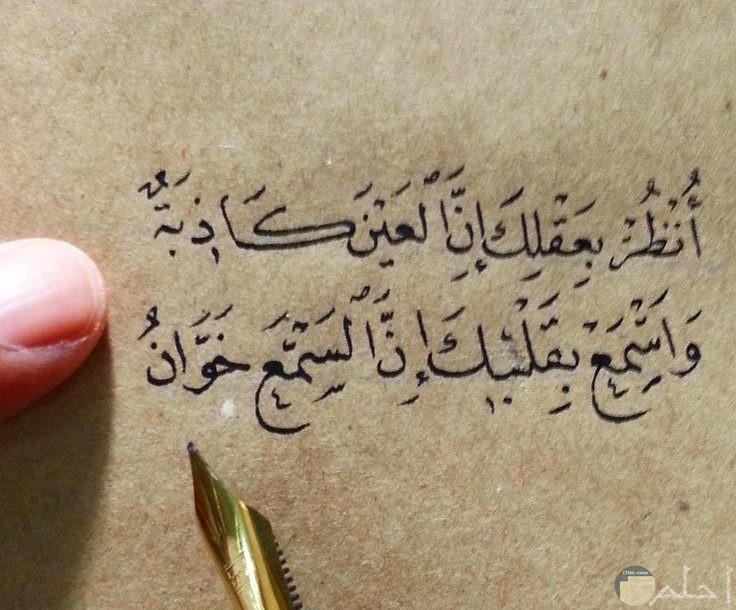 أُنْظُرْ بِعَقْلِكَ إِنَّ الْعَيْنَ كَاذِبَةٌ
وَاسْمَعْ بِقَلْبِكَ إِنَّ السَّمْعَ خَوَّانُ
i7lm.com
احلم